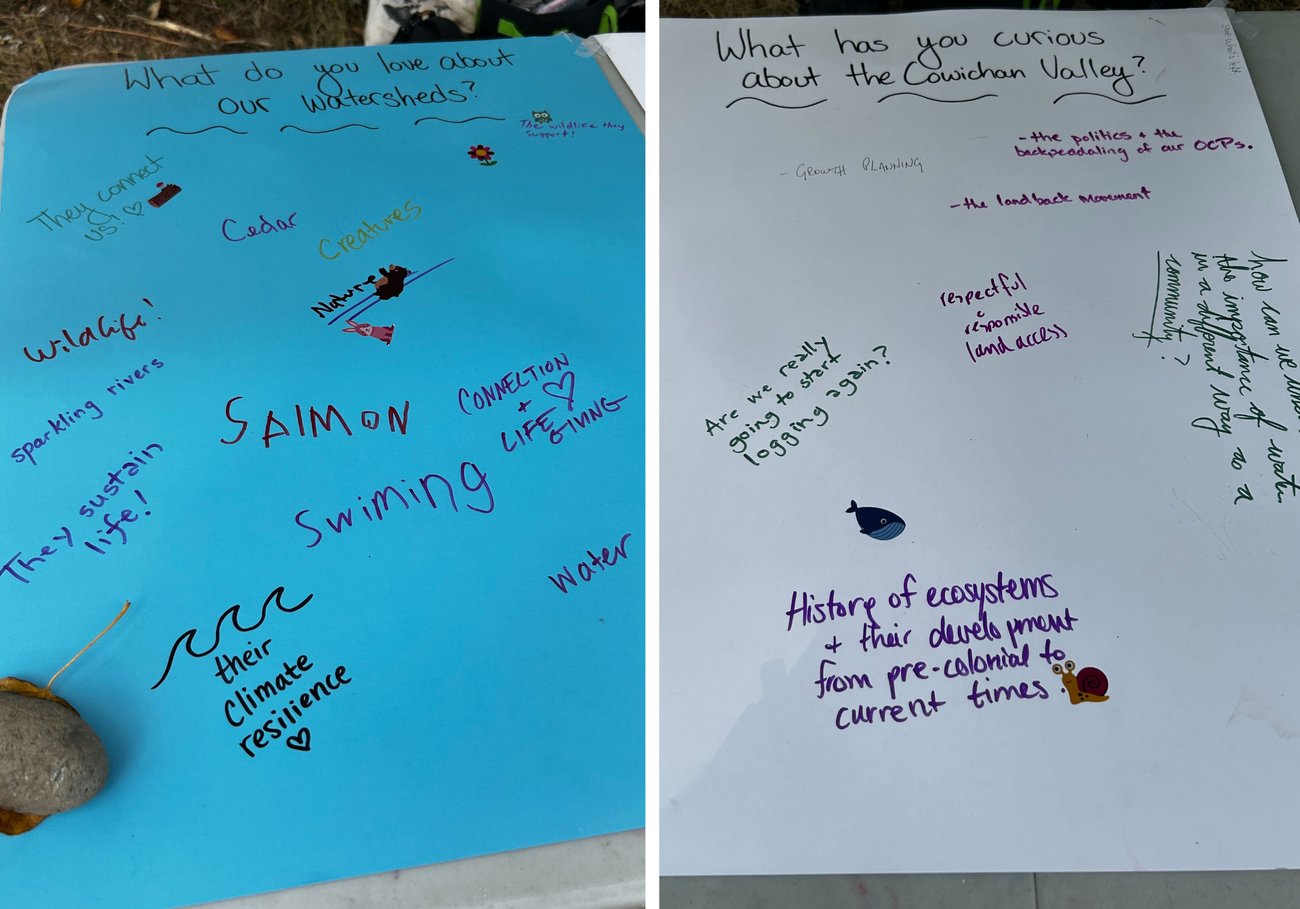 What do you love about
our Watersheds?
The wildlife they
support!
They connect
us! ♡
Cedar
Creatures
Nature
Wildlife!
sparkling rivers
SALMON
CONNECTION
+ ♡
LIFE
GIVING
They sustain
life!
Swiming
Water
their
Climate
resilience
♡
What has you curious
about the Cowichan Valley?
- the politics + the
backpeaddaling of our OCPs.
- GROWTH PLANNING
- the landback movement
respectful
+
responsible
land access
how can we
the importance of water
in a different way as a
community?
Are we really
going to start
logging again?
History of ecosystems
+ their development
from pre-colonial to
current times.